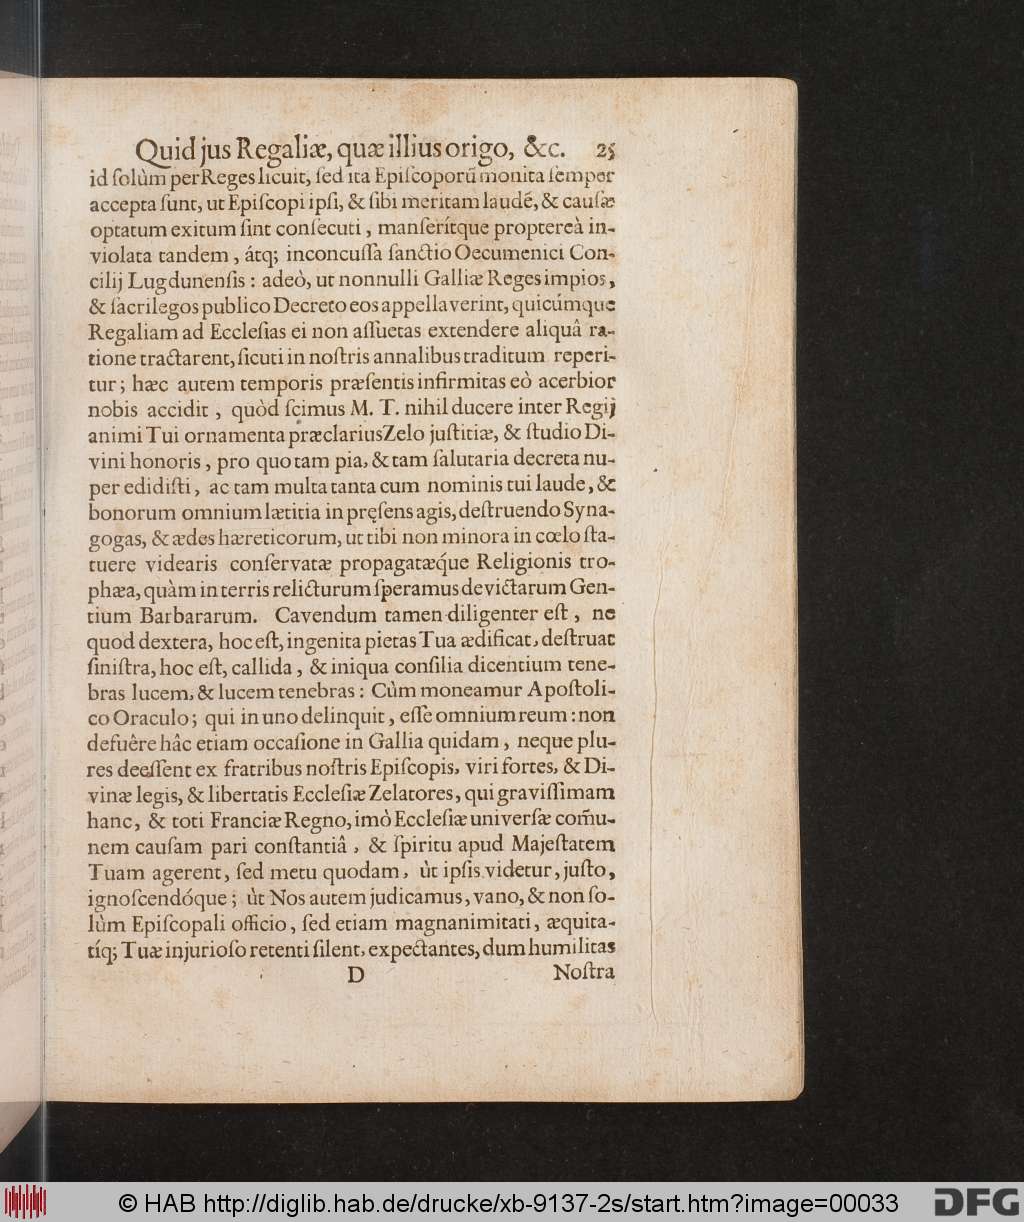 Quid jus Regaliæ, quæ illius origo, &c. 25
id ſolùm per Reges licuit, ſed ita Epiſcoporũ monita ſemper
accepta ſunt, ut Epiſcopi ipſi, & ſibi meritam laudẽ, & cauſæ
optatum exitum ſint conſecuti, manſerítque proptereà in-
violata tandem, átq; inconcuſſa ſanctio Oecumenici Con-
cilij Lugdunenſis: adeò, ut nonnulli Galliæ Reges impios,
& ſacrilegos publico Decreto eos appellaverint, quicúmque
Regaliam ad Eccleſias ei non aſſuetas extendere aliquâ ra-
tione tractarent, ſicuti in noſtris annalibus traditum reperi-
tur; hæc autem temporis præſentis infirmitas eò acerbior
nobis accidit, quòd ſcimus M. T. nihil ducere inter Regij
animi Tui ornamenta præclarius Zelo juſtitiæ, & ſtudio Di-
vini honoris, pro quo tam pia, & tam ſalutaria decreta nu-
per edidiſti, ac tam multa tanta cum nominis tui laude, &
bonorum omnium lætitia in pręſens agis, deſtruendo Syna-
gogas, & ædes hæreticorum, ut tibi non minora in cœlo ſta-
tuere videaris conſervatæ propagatæq́ue Religionis tro-
phæa, quàm in terris relicturum ſperamus devictarum Gen-
tium Barbararum. Cavendum tamen diligenter eſt, ne
quod dextera, hoc eſt, ingenita pietas Tua ædificat, deſtruat
ſiniſtra, hoc eſt, callida, & iniqua conſilia dicentium tene-
bras lucem, & lucem tenebras: Cùm moneamur Apoſtoli-
co Oraculo; qui in uno delinquit, eſſe omnium reum: non
defuêre hâc etiam occaſione in Gallia quidam, neque plu-
res deeſſent ex fratribus noſtris Epiſcopis, viri fortes, & Di-
vinæ legis, & libertatis Eccleſiæ Zelatores, qui graviſſimam
hanc, & toti Franciæ Regno, imò Eccleſiæ univerſæ com̃u-
nem cauſam pari conſtantiâ, & ſpiritu apud Majeſtatem
Tuam agerent, ſed metu quodam, ùt ipſis videtur, juſto,
ignoſcendóque; ùt Nos autem judicamus, vano, & non ſo-
lùm Epiſcopali officio, ſed etiam magnanimitati, æquita-
tíq; Tuæ injurioſo retenti ſilent, expectantes, dum humilitas
D Noſtra
© HAB http://diglib.hab.de/drucke/xb-9137-2s/start.htm?image=00033
DFG